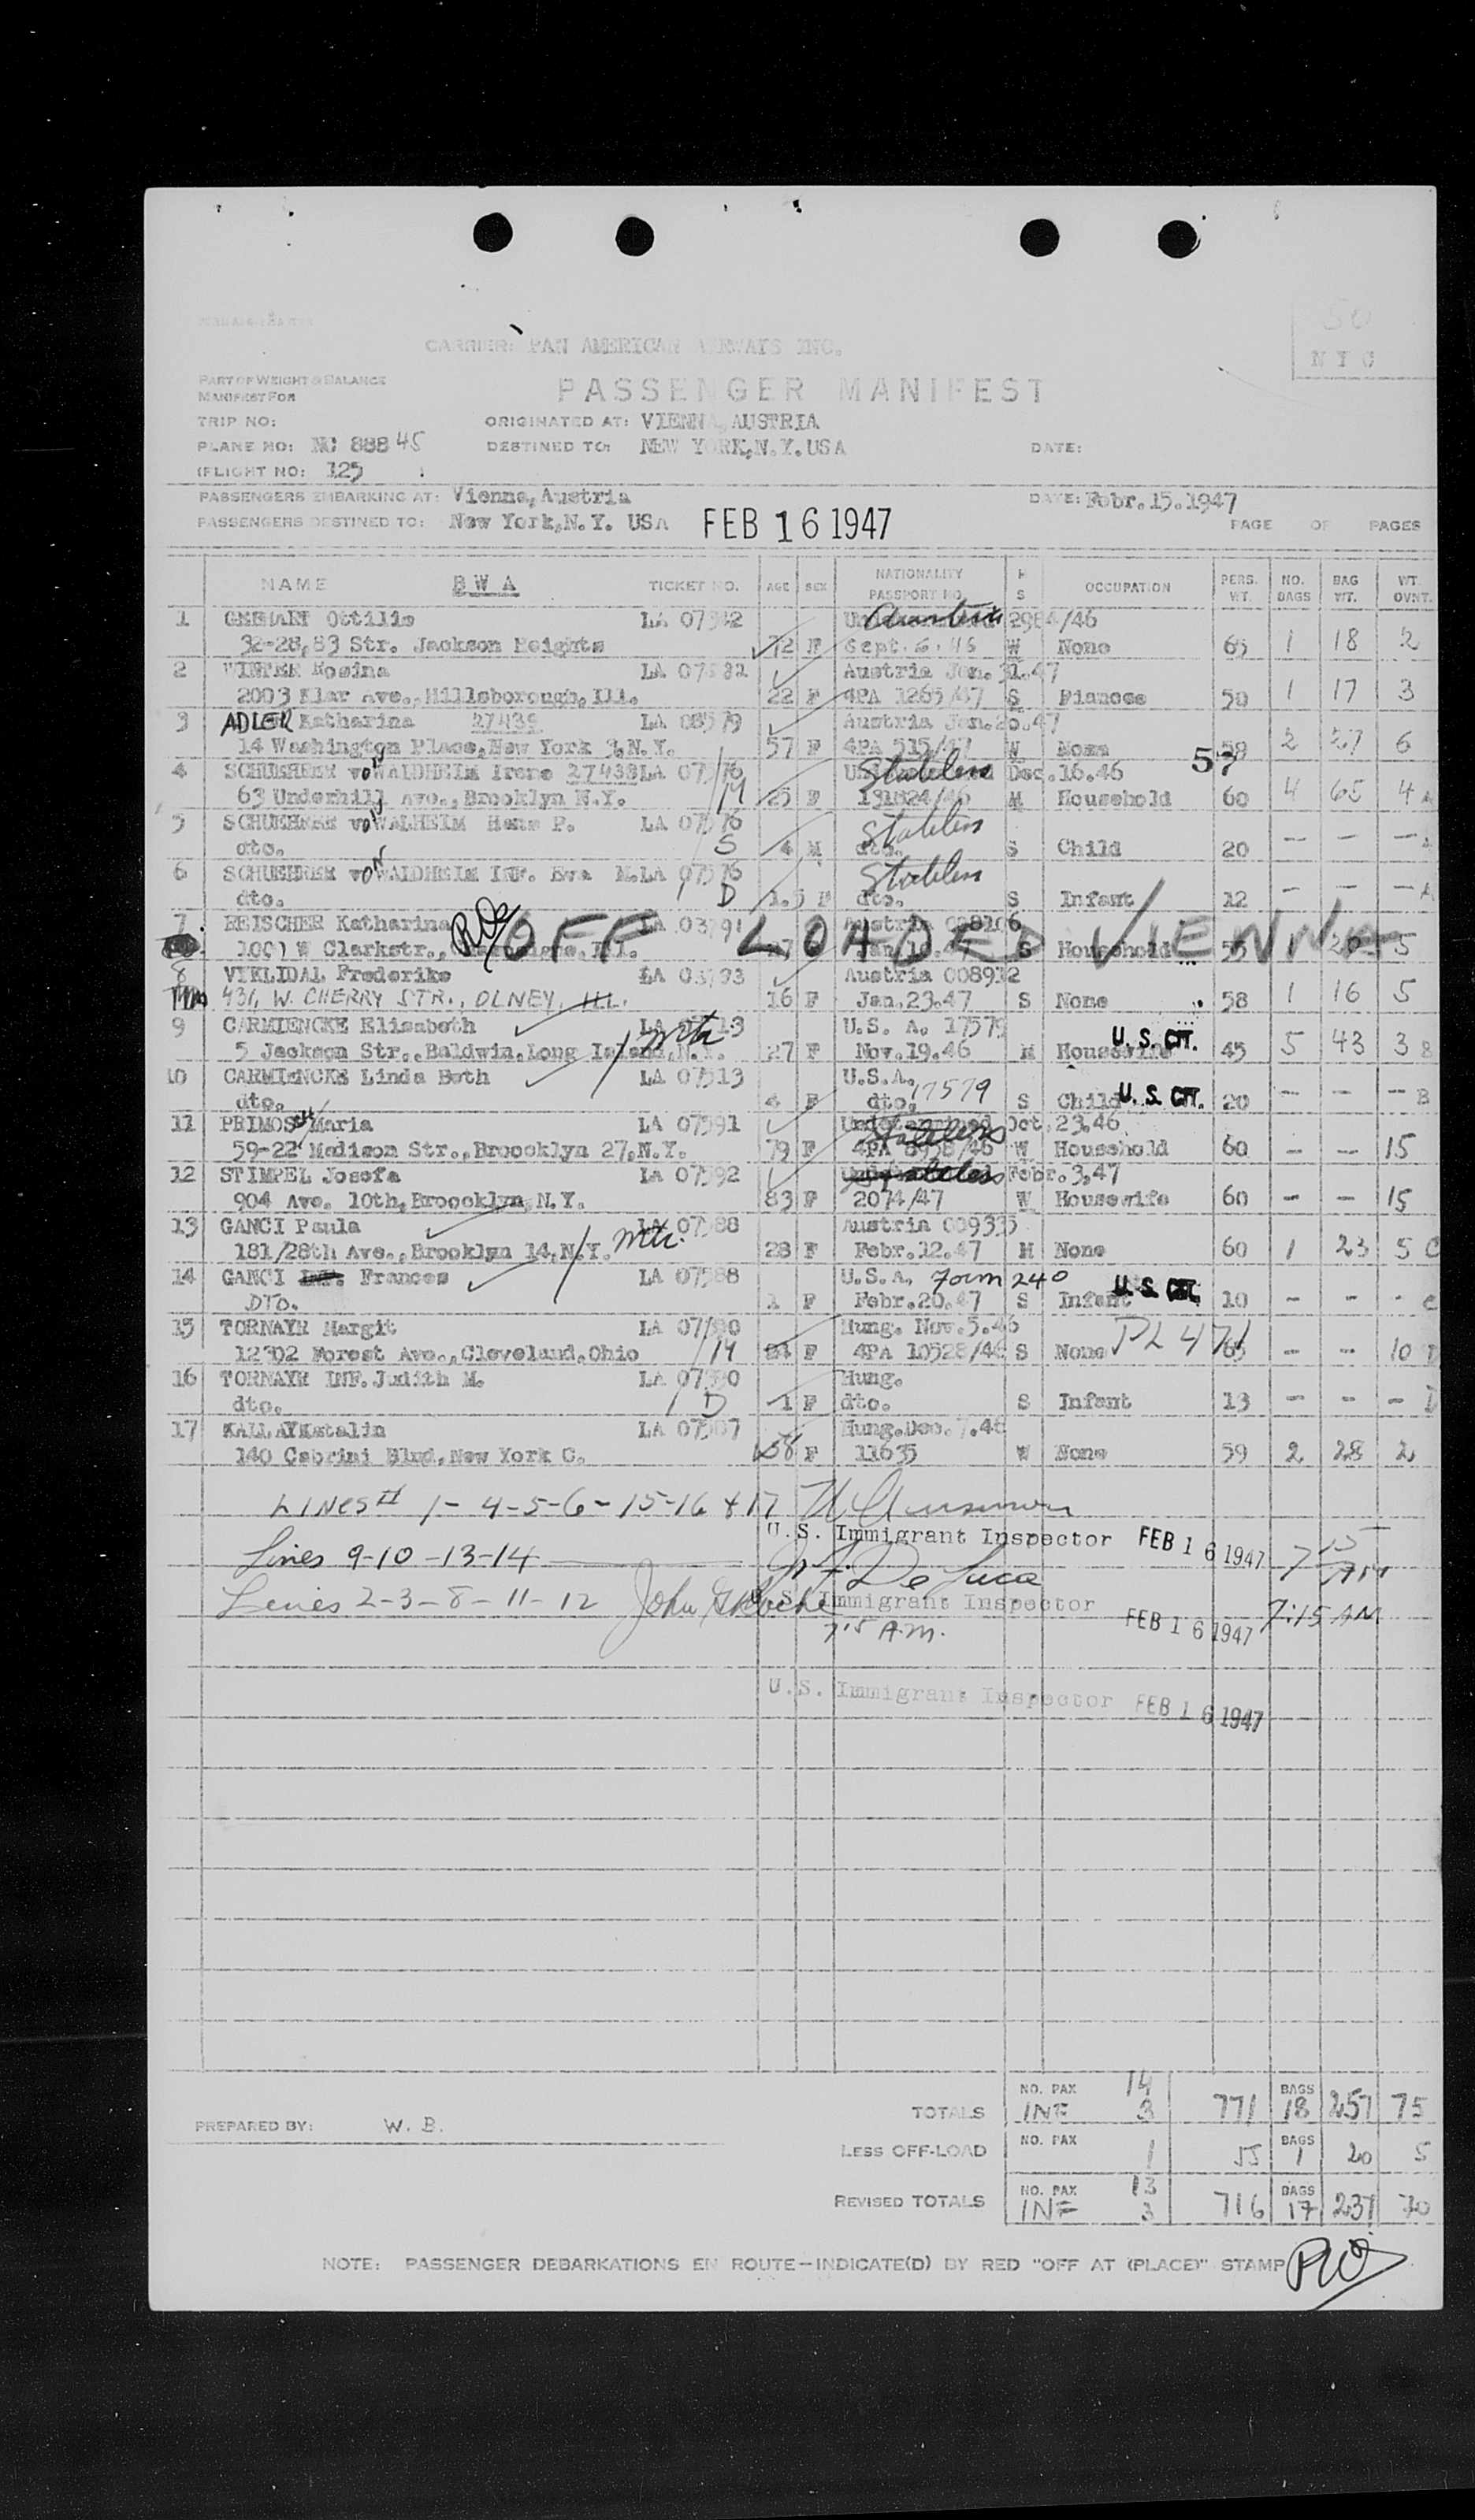 50
NYC
CARRIER: PAN AMERICAN AIRWAYS INC.
PART OF WEIGHT & BALANCE
MANIFEST FOR
PASSENGER MANIFEST
TRIP NO: ORIGINATED AT: VIENNA, AUSTRIA
PLANE NO: NC 88845 DESTINED TO: NEW YORK, N.Y. USA DATE:
(FLIGHT NO: 125 )
PASSENGERS EMBARKING AT: Vienna, Austria DATE: Febr.15.1947
PASSENGERS DESTINED TO: New York, N.Y. USA FEB 16 1947 PAGE OF PAGES
NAME B W A TICKET NO. AGE SEX NATIONALITY PASSPORT NO. M S OCCUPATION PERS. WT. NO. BAGS BAG WT. WT. OVNT.
1 Ottilie 2984/46
32-28, 83 Str. Jackson Heights 72 F Sept.6.46 W None 65 1 18 2
2 WINTER Rosina Austria Jan.31.47
2003 Klar Ave., Hillsborough, Ill. 22 F 4PA 1265/47 S Fiancee 50 1 17 3
3 ADLER Katharina 27439 LA 08579 Austria Jan.20.47
14 Washington Place, New York 3, N.Y. 57 F 4PA 515/47 W None 59 2 27 6
4 SCHUEHRER von WALDHEIM Irene 27438 LA 07576 Stateless Dec.16.46
63 Underhill Ave., Brooklyn N.Y. 25 F 131824/46 M Household 60 4 65 4 A
5 SCHUEHRER von WALHEIM Hans P. LA 07576 Stateless
dto. S 4 M dto. S Child 20 — — —
6 SCHUEHRER von WALDHEIM INF. Eva M. LA 07576 Stateless
dto. D 1.5 F dto. S Infant 12 — — — A
7 REISCHER Katharina LA 03791 Austria 008106
OFF LOADED VIENNA
W Clarkstr., S Household 55 1 20 5
8 VIKLIDAL Frederike LA 03793 Austria 008912
431, W. CHERRY STR., OLNEY, ILL. 16 F Jan.23.47 S None 58 1 16 5
9 CARMIENCKE Elisabeth LA 07513 U.S. A. 17579
5 Jackson Str., Baldwin, Long Island, N.Y. 27 F Nov.19.46 M Housewife U.S. CIT. 45 5 43 3 B
10 CARMIENCKE Linda Beth LA 07513 U.S.A.
dto. 4 F dto. 17579 S Child U.S. CIT. 20 — — — B
11 PRIMOSCH Maria LA 07591 Undetermined Stateless Oct.23.46
59-22 Madison Str., Broocklyn 27, N.Y. 79 F 4PA 8958/46 W Household 60 — — 15
12 STIMPEL Josefa LA 07592 Stateless Febr.3.47
904 Ave. 10th, Broocklyn, N.Y. 83 F 2074/47 W Housewife 60 — — 15
13 GANCI Paula LA 07588 Austria 009335
181/28th Ave., Brooklyn 14, N.Y. 28 F Febr.12.47 M None 60 1 23 5 C
14 GANCI INF. Frances LA 07588 U.S.A. Form 240
DTO. 1 F Febr.20.47 S Infant U.S. CIT. 10 - - - C
15 TORNAYR Margit Hung. Nov.5.46
12302 Forest Ave., Cleveland, Ohio F 4PA 10528/46 S None PL 471 65 — — 10 D
16 TORNAYR INF. Judith M. Hung.
dto. D 1 F dto. S Infant 13 — — — D
17 KALLAY Katalin Hung. Dec.7.46
140 Cabrini Blvd, New York C. 58 F 11635 W None 59 2 28 2
LINES # 1-4-5-6-15-16 & 17
U.S. Immigrant Inspector FEB 16 1947 7 15 AM
Lines 9-10-13-14 De Luca
Lines 2-3-8-11-12 John U.S. Immigrant Inspector FEB 16 1947 7:15 AM
7 15 A.M.
U.S. Immigrant Inspector FEB 16 1947
TOTALS NO. PAX 14 INF 3 771 BAGS 18 257 75
PREPARED BY: W. B.
LESS OFF-LOAD NO. PAX 1 55 BAGS 1 20 5
REVISED TOTALS NO. PAX 13 INF 3 716 BAGS 17 237 70
NOTE: PASSENGER DEBARKATIONS EN ROUTE—INDICATE(D) BY RED "OFF AT (PLACE)" STAMP